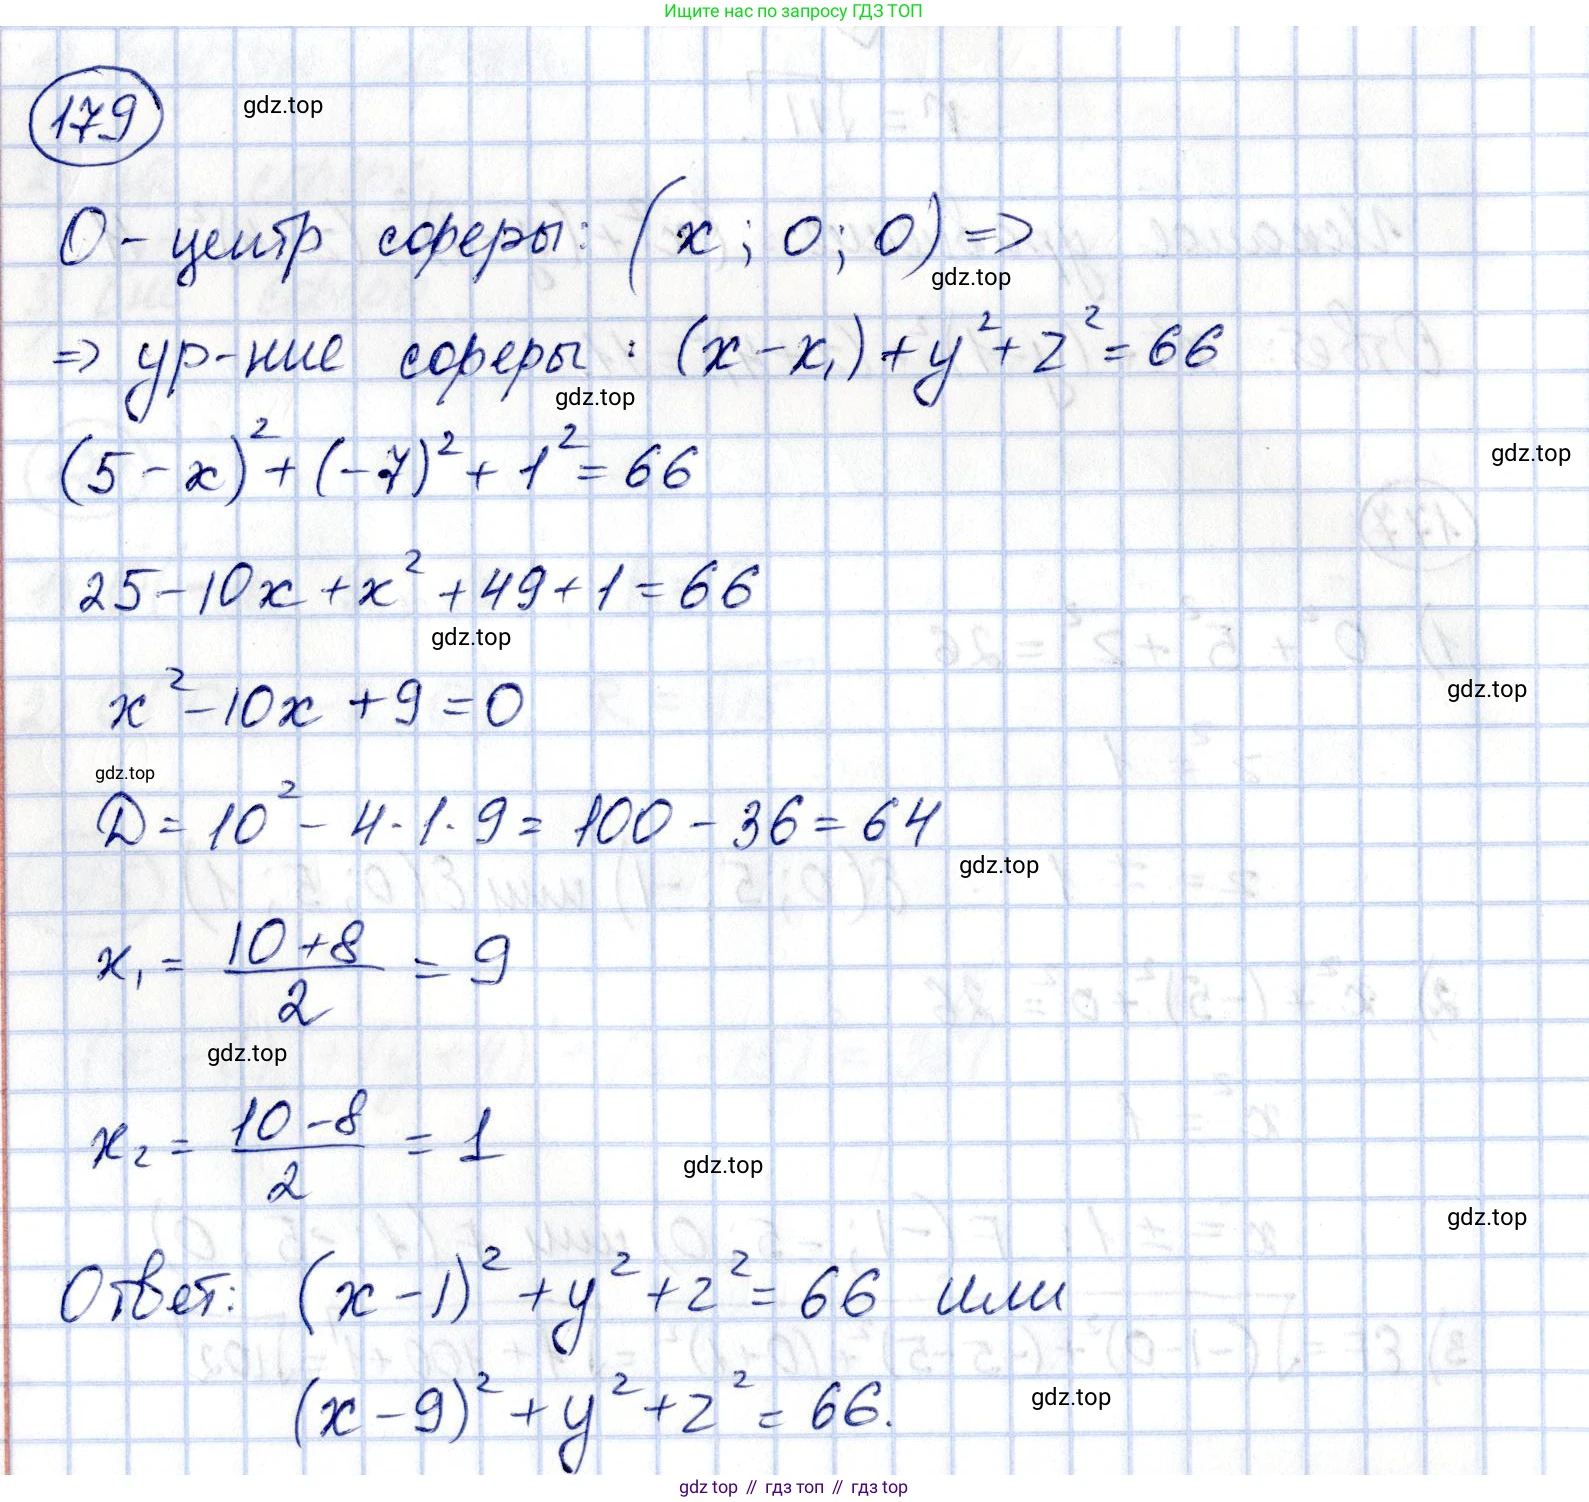 Ищите нас по запросу ГДЗ ТОП
179
gdz.top
О - центр сферы: (x; 0; 0) =>
gdz.top
=> ур-ние сферы: (x - x₁) + y² + z² = 66
gdz.top
(5 - x)² + (-7)² + 1² = 66
gdz.top
25 - 10x + x² + 49 + 1 = 66
gdz.top
x² - 10x + 9 = 0
gdz.top
gdz.top
D = 10² - 4 · 1 · 9 = 100 - 36 = 64
gdz.top
x₁ = (10 + 8)/2 = 9
gdz.top
x₂ = (10 - 8)/2 = 1
gdz.top
gdz.top
Ответ: (x - 1)² + y² + z² = 66 или
(x - 9)² + y² + z² = 66.
gdz.top
gdz.top // гдз топ // гдз top